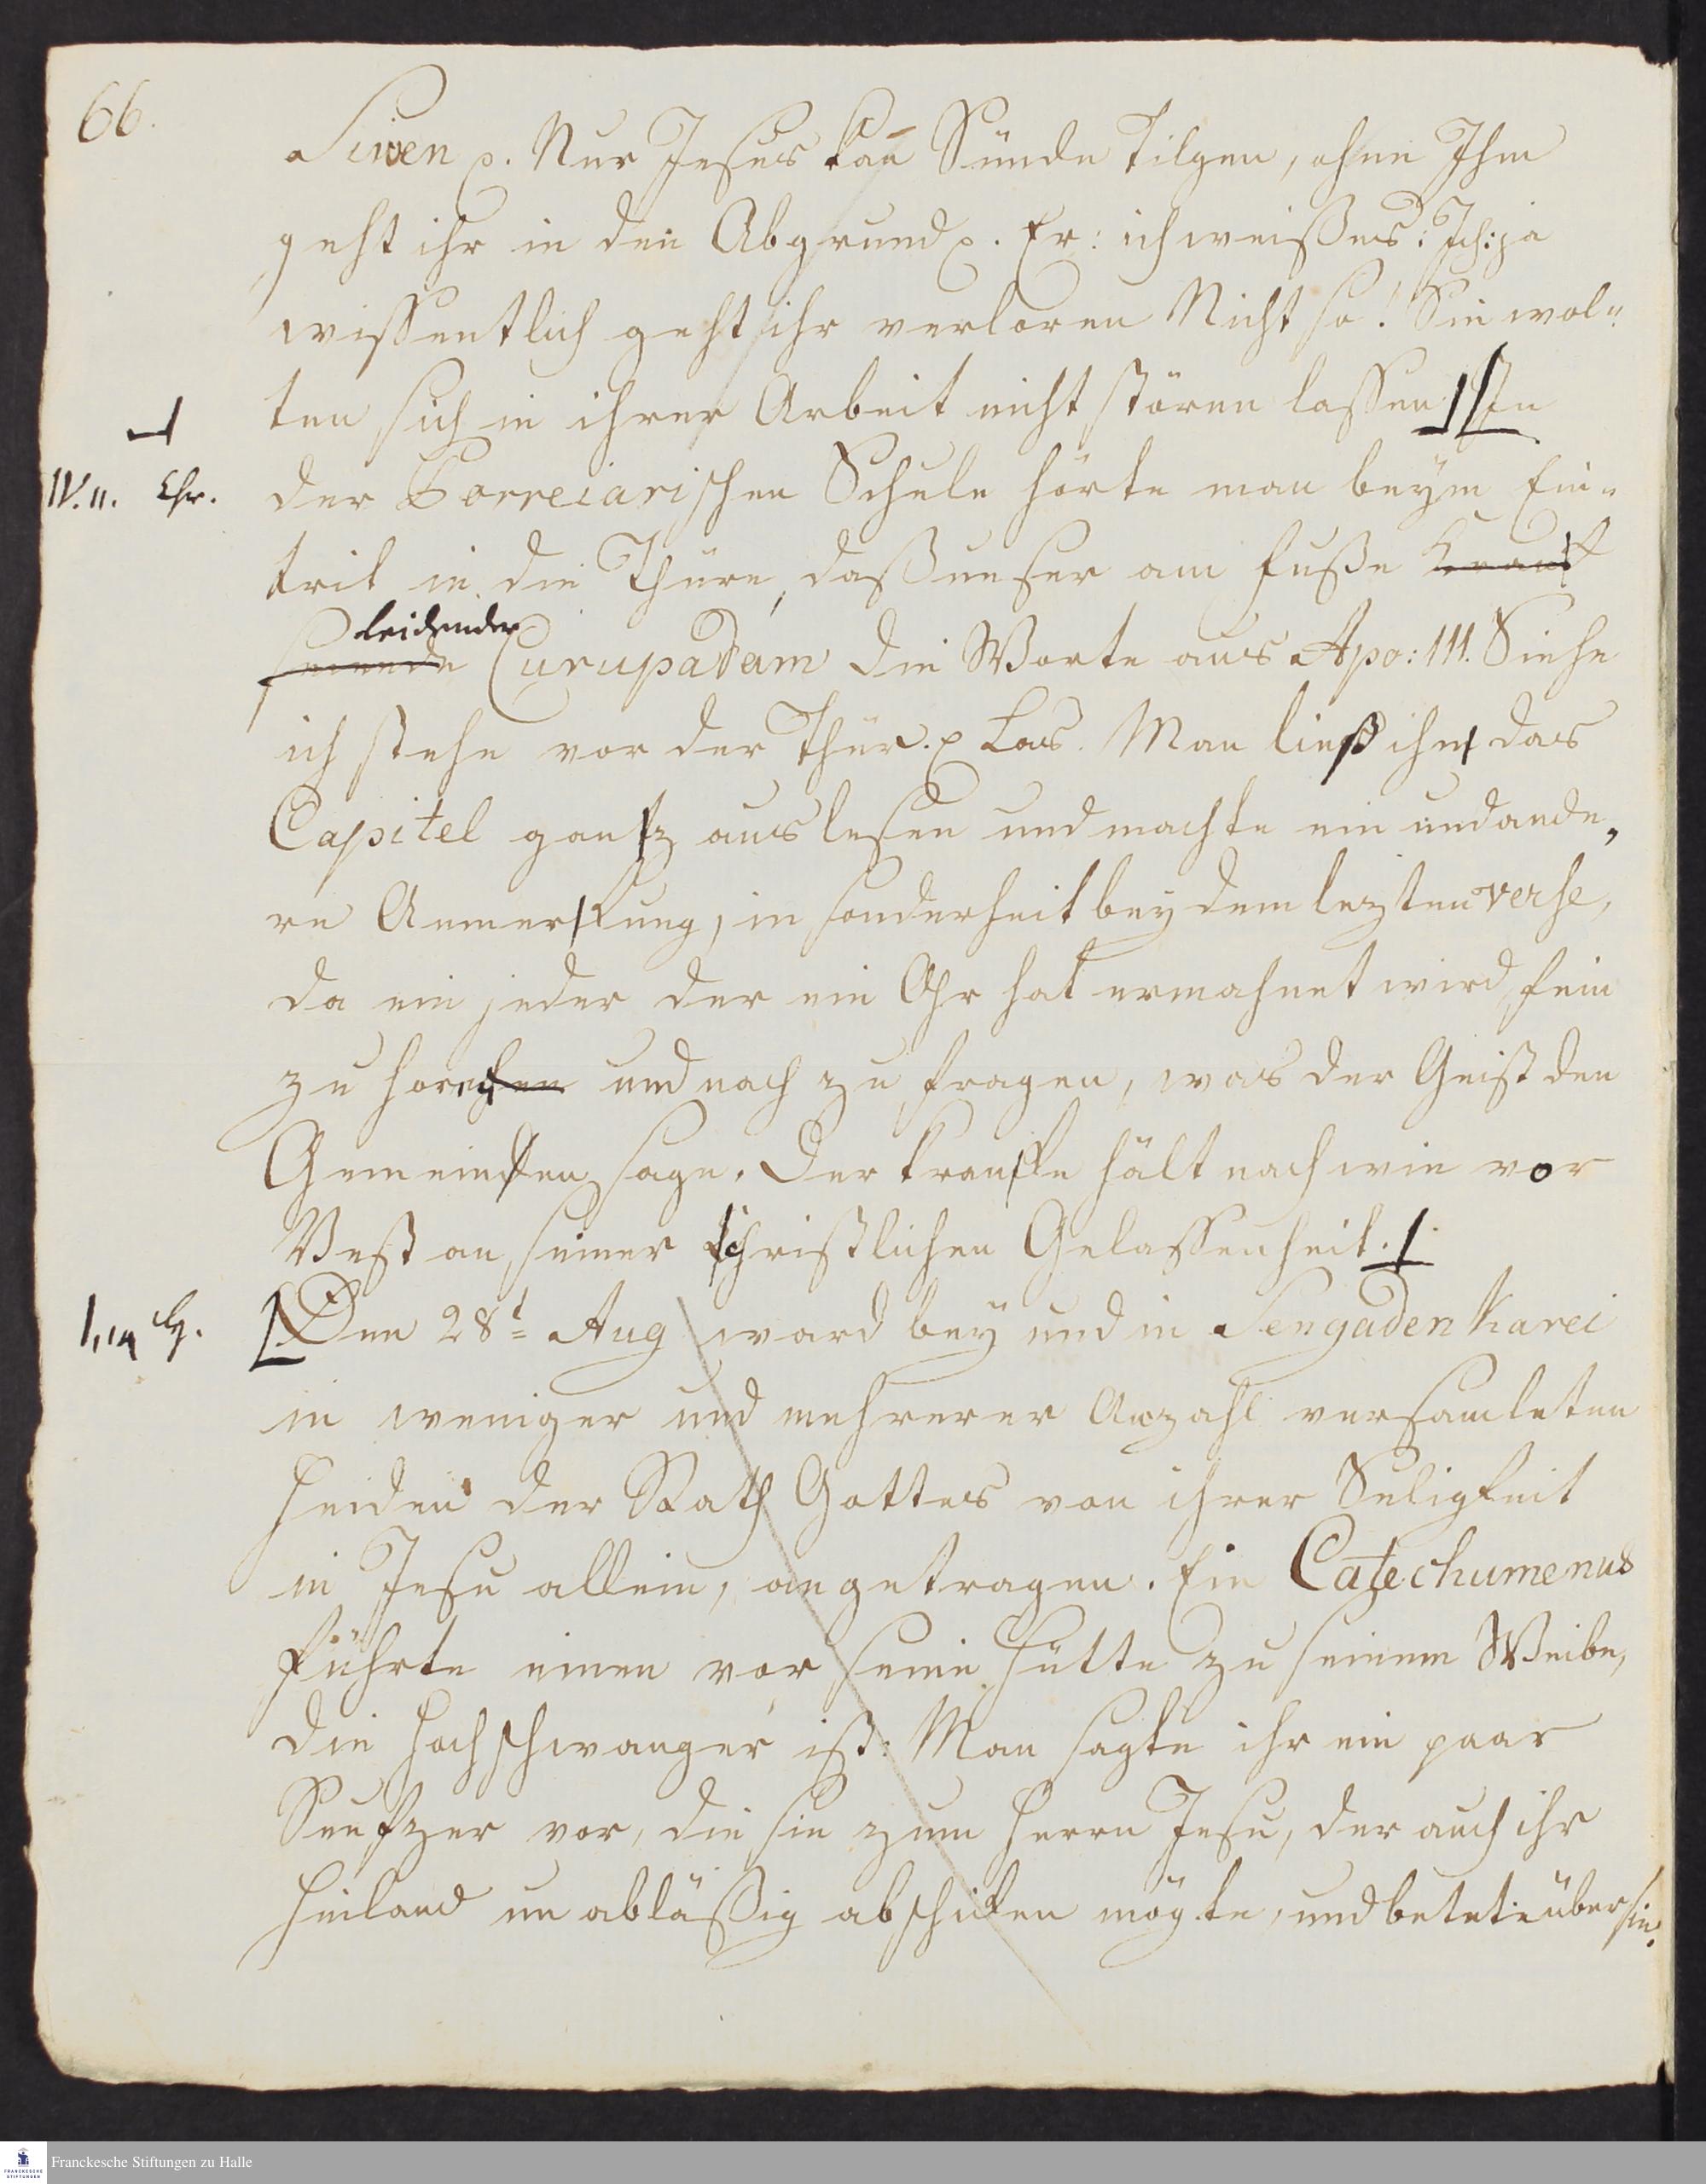 66.
Siwen p. Nur Jesus kan̅ Sünde Tilgen, ohne Ihm
geht ihr in den Abgrund p. Er: ich weiß es: Ich: ja
wissentlich geht ihr verloren Nicht so! Sie wol-
ten sich in ihrer Arbeit nicht stören lassen In
IV. 11. Chr.
der Porreiarischen Schule hörte man beym Ein-
trit in die Thüre, daß unser am Fuße krank
leidender
seiende Curupadam die Worte aus Apo: 111. Siehe
ich stehe vor der Thür. p Las. Man ließ ihm das
Capitel gantz aus lesen und machte ein und ande-
re Anmerkung, in sonderheit bey dem lezten verse,
da ein jeder der ein Ohr hat ermahnet wird fein
zu horchen und nach zu fragen, was der Geist den
Gemeinden sage. Der kranke hält nach wie vor
Vest an seiner christlichen Gelassenheit.
Den 28t Aug ward bey und in Sengaden Karei
in weniger und mehrerer Anzahl versamleten
Heiden der Rath Gottes von ihrer Seligkeit
in Jesu allein, angetragen. Ein Catechumenus
führte einen vor seine Hütte zu seinem Weibe,
die hochschwanger ist: Man sagte ihr ein paar
Seufzer vor, die sie zum Herrn Jesu, der auch ihr
Heiland un abläßig abschiken mögte, und betete über sie.
Franckesche Stiftungen zu Halle